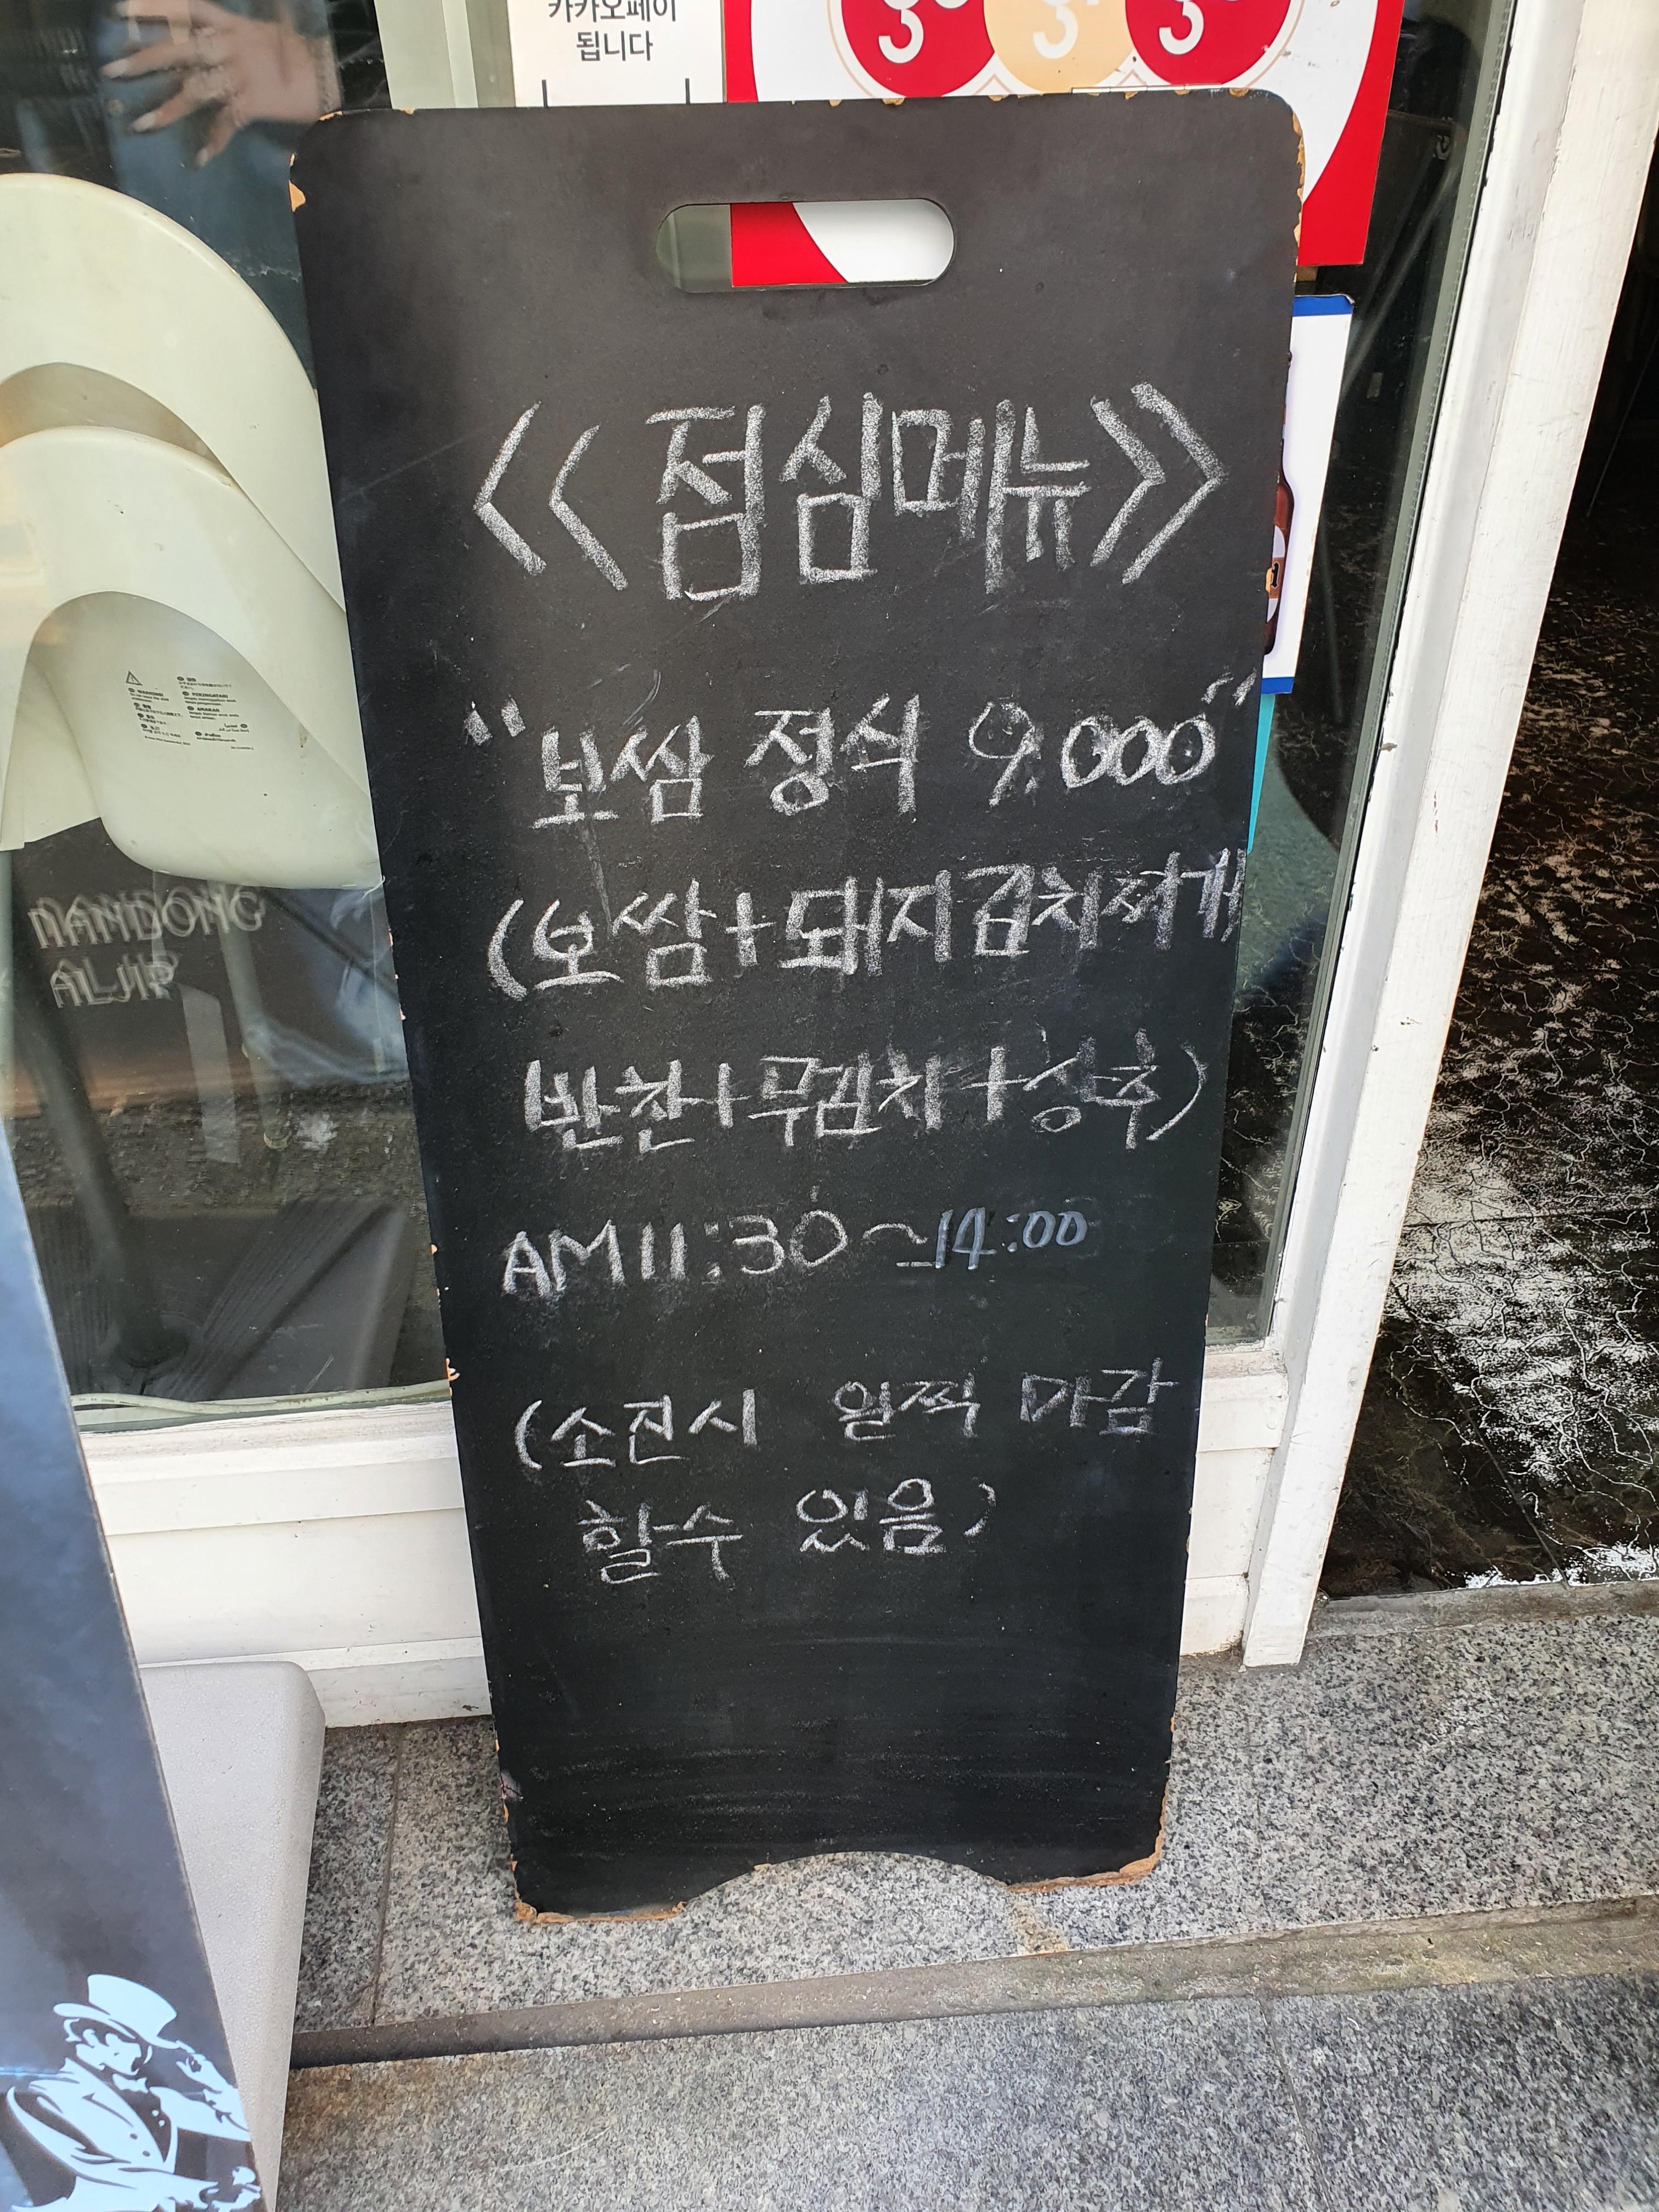 카카오페이
됩니다
<< 점심메뉴 >>
"보쌈 정식 9.000"
(보쌈+돼지김치찌개
반찬+무김치+상추)
AM 11:30~14:00
(소진시 일찍 마감
할수 있음)
NAMDONG
ALJIP